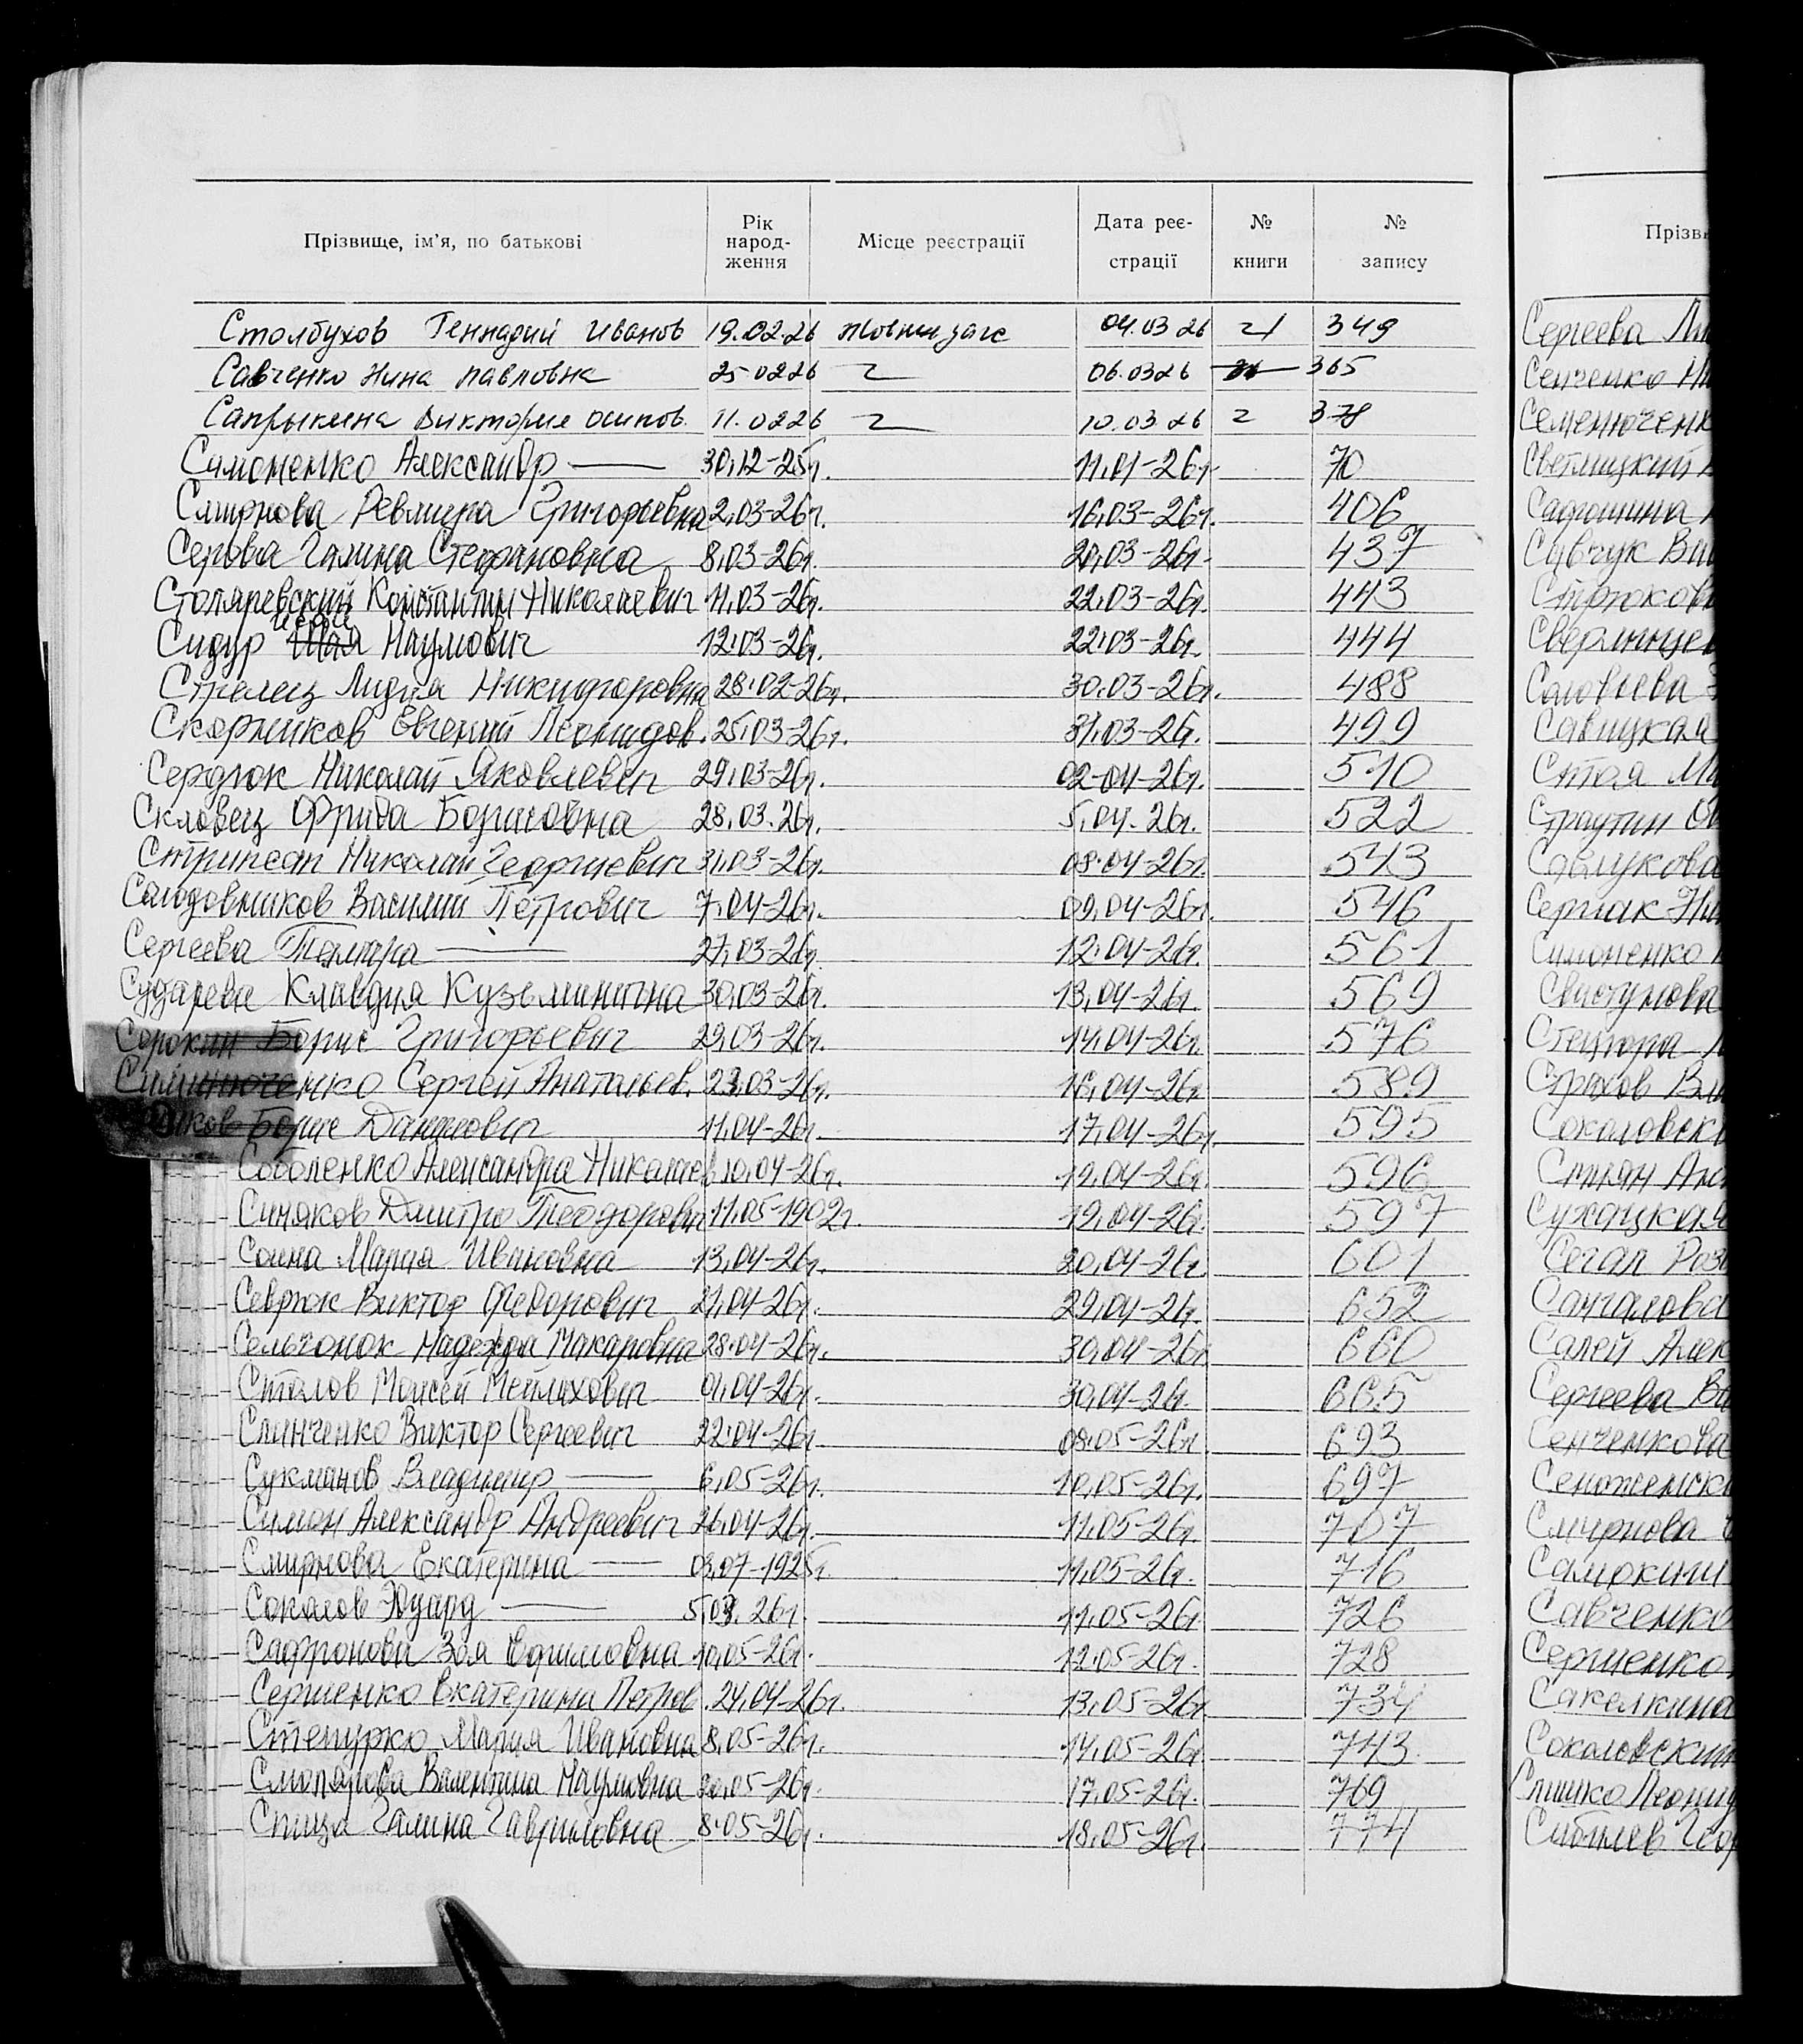 Прізвище, ім'я, по батькові Рік народ-ження Місце реєстрації Дата реє-страції № книги № запису
Столбухов Геннадий Иванов 19.02.26 04.03 26 21 349
Савченко Нина Павловна 25 02 26 06.03 26 365
Сапрыкина Виктория Осипов. 11.02 26 10.03.26 378
Симоненко Александр — 30,12-25г. 11,01-26г. 70
Смирнова Ревмира Григорьевна 2,03-26г. 16,03-26г. 406
Серова Галина Стефановна 8,03-26г. 20,03-26г. 437
Столяревский Константин Николаевич 11,03-26г. 22,03-26г. 443
Сидур Шая Наумович 12,03-26г. 22,03-26г. 444
Стрелец Лидия Никифоровна 28,02-26г. 30,03-26г. 488
Скорняков Евгений Леонидов. 25,03-26г. 31,03-26г. 499
Сердюк Николай Яковлевич 29,03-26г. 02-04-26г. 510
Скловец Фрида Борисовна 28.03.26г. 5,04.26г. 522
Николай Георгиевич 31,03-26г. 08,04-26г. 543
Солодовников Василий Петрович 7,04-26г. 09,04-26г. 546
Сергеева Тамара — 27,03-26г. 12,04-26г. 561
Сударева Клавдия Кузьминична 30,03-26г. 13,04-26г. 569
Сорокин Борис Григорьевич 29,03-26г. 14,04-26г. 576
Сергей Анатольев. 23,03-26г. 16,04-26г. 589
Борис Данилович 11,04-26г. 17,04-26г. 595
Соболенко Александра Николаев 10,04-26г. 19,04-26г. 596
Синяков Дмитро Теодорович 11,05-1902г. 19,04-26г. 597
Соина Мария Ивановна 13,04-26г. 20,04-26г. 601
Севрюк Виктор Федорович 21,04-26г. 29,04-26г. 652
Сельчонок Надежда Макаровна 28,04-26г. 30,04-26г. 660
Столов Моисей Мейлихович 01,04-26г. 30,04-26г. 665
Слинченко Виктор Сергеевич 22,04-26г. 08,05-26г. 693
Сукманов Владимир — 6,05-26г. 10,05-26г. 697
Симон Александр Андреевич 26,04-26г. 11,05-26г. 707
Смирнова Екатерина — 03,07-1925г. 11,05-26г. 716
Соколов Эдуард — 5,03.26г. 11,05-26г. 726
Сафронова Зоя Ефимовна 10,05-26г. 12,05-26г. 728
Сергиенко Екатерина Петров. 24,04-26г. 13,05-26г. 734
Степурко Мария Ивановна 8,05-26г. 14,05-26г. 743
Смолярова Валентина Наумовна 20,05-26г. 17,05-26г. 769
Спица Галина Гавриловна 8,05-26г. 18,05-26г. 774
Прізв
Сергеева
Сенченко
Семенюченк
Светлицкий
Савчук
Соловьева
Савицкая
Страутин
Симоненко
Страхов
Соколовск
Стиян
Сухацкая
Сегал Роз
Сангалова
Салей Алек
Сергеева Ва
Сенченкова
Смирнова
Самокиш
Савченко
Сергиенко
Сакелкина
Соколовский
Слишко Леонид
Сибилев Геор